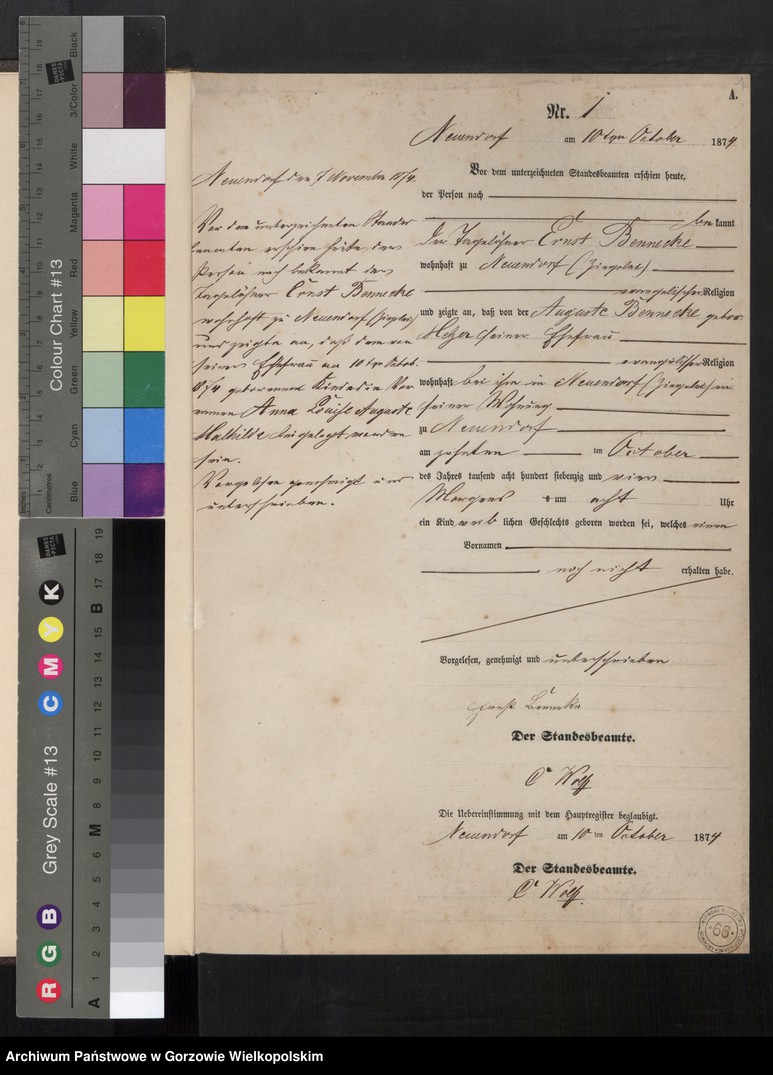 A.
Nr. 1
Neuendorf am 10ten October 1874
Vor dem unterzeichneten Standesbeamten erschien heute,
der Person nach
bekannt
der Tagelöhner Ernst Bennecke
wohnhaft zu Neuendorf (Ziegelei)
evangelischer Religion
und zeigte an, daß von der Auguste Bennecke gebor.
seiner Ehefrau
evangelischer Religion
wohnhaft bei ihm in Neuendorf (Ziegelei) in
seiner Wohnung
zu Neuendorf
am zehnten ten October
des Jahres tausend acht hundert siebenzig und vier
Morgens s um acht Uhr
ein Kind weib lichen Geschlechts geboren worden sei, welches einen
Vornamen
noch nicht erhalten habe.
Vorgelesen, genehmigt und unterschrieben
Ernst Benneke
Der Standesbeamte.
Wolff
Die Uebereinstimmung mit dem Hauptregister beglaubigt.
Neuendorf am 10 ten October 1874
Der Standesbeamte.
Wolff.
Neuendorf den 7 November 1874.
Vor dem unterzeichneten Standes
beamten erschien heute der
Person nach bekannt der
Tagelöhner Ernst Bennecke
wohnhaft zu Neuendorf (Ziegelei)
und zeigte an, daß dem von
seiner Ehefrau am 10ten Octob.
1874 geborenen Kinde die Vor
namen Anna Louise Auguste
Mathilde beigelegt worden
sein.
Vorgelesen genehmigt und
unterschrieben.
66
Colour Chart #13
Blue
Cyan
Green
Yellow
Red
Magenta
White
3/Color
Black
Inches
Centimetres
DANES
PICTA
Grey Scale #13
R G B
C M Y K
A
M
B
1 2 3 4 5 6 8 9 10 11 12 13 14 15 17 18 19
Archiwum Państwowe w Gorzowie Wielkopolskim